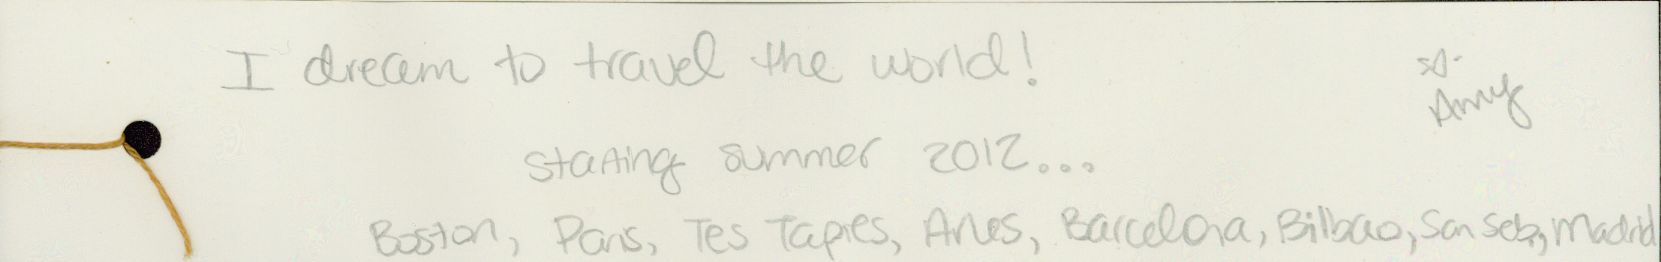 I dream to travel the world!
☆.
Amy
starting summer 2012...
Boston, Paris, Tes Tapies, Arles, Barcelona, Bilbao, San Seb, Madrid